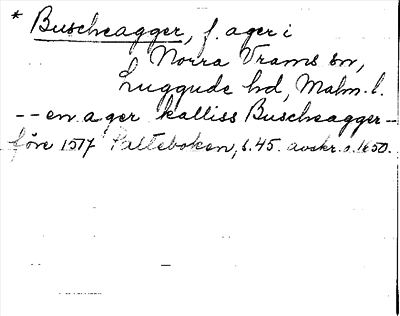 * Buscheagger, f. ager i
Norra Vrams sn,
Luggude hd, Malm. l.
-- en ager kalliss Buscheagger --
före 1517 Palteboken, s. 45. avskr. o. 1650.